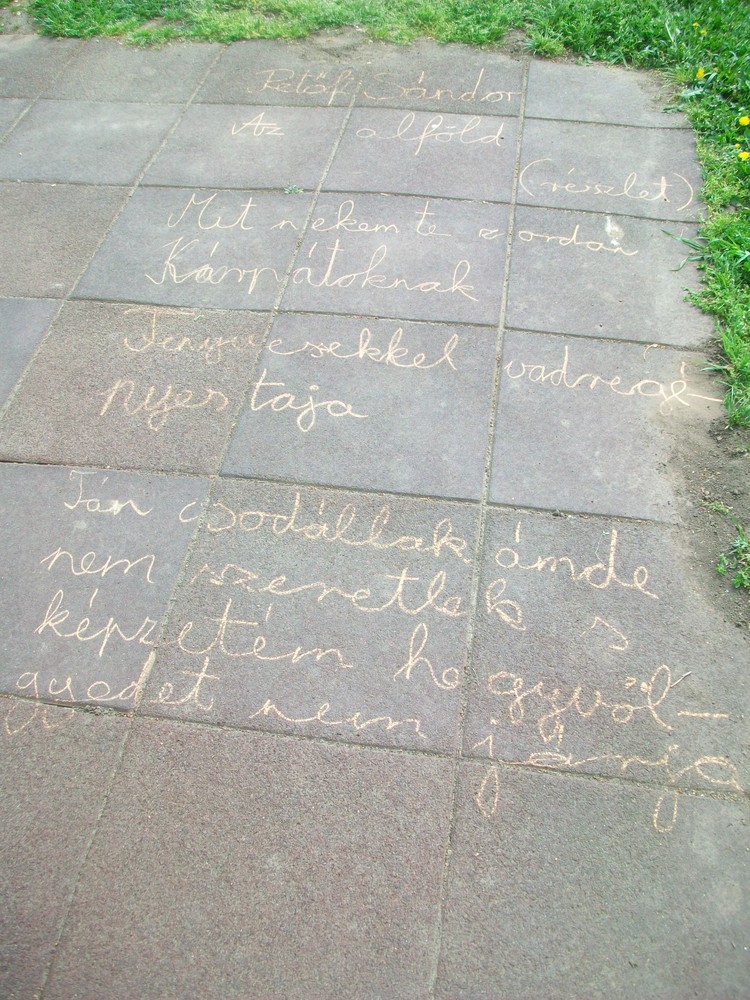 Petőfi Sándor
Az alföld
(részlet)
Mit nekem te zordon
Kárpátoknak
Fenyvesekkel vadregé-
nyes tája
Tán csodállak ámde
nem szeretlek s
képzetem hegyvöl-
gyedet nem járja